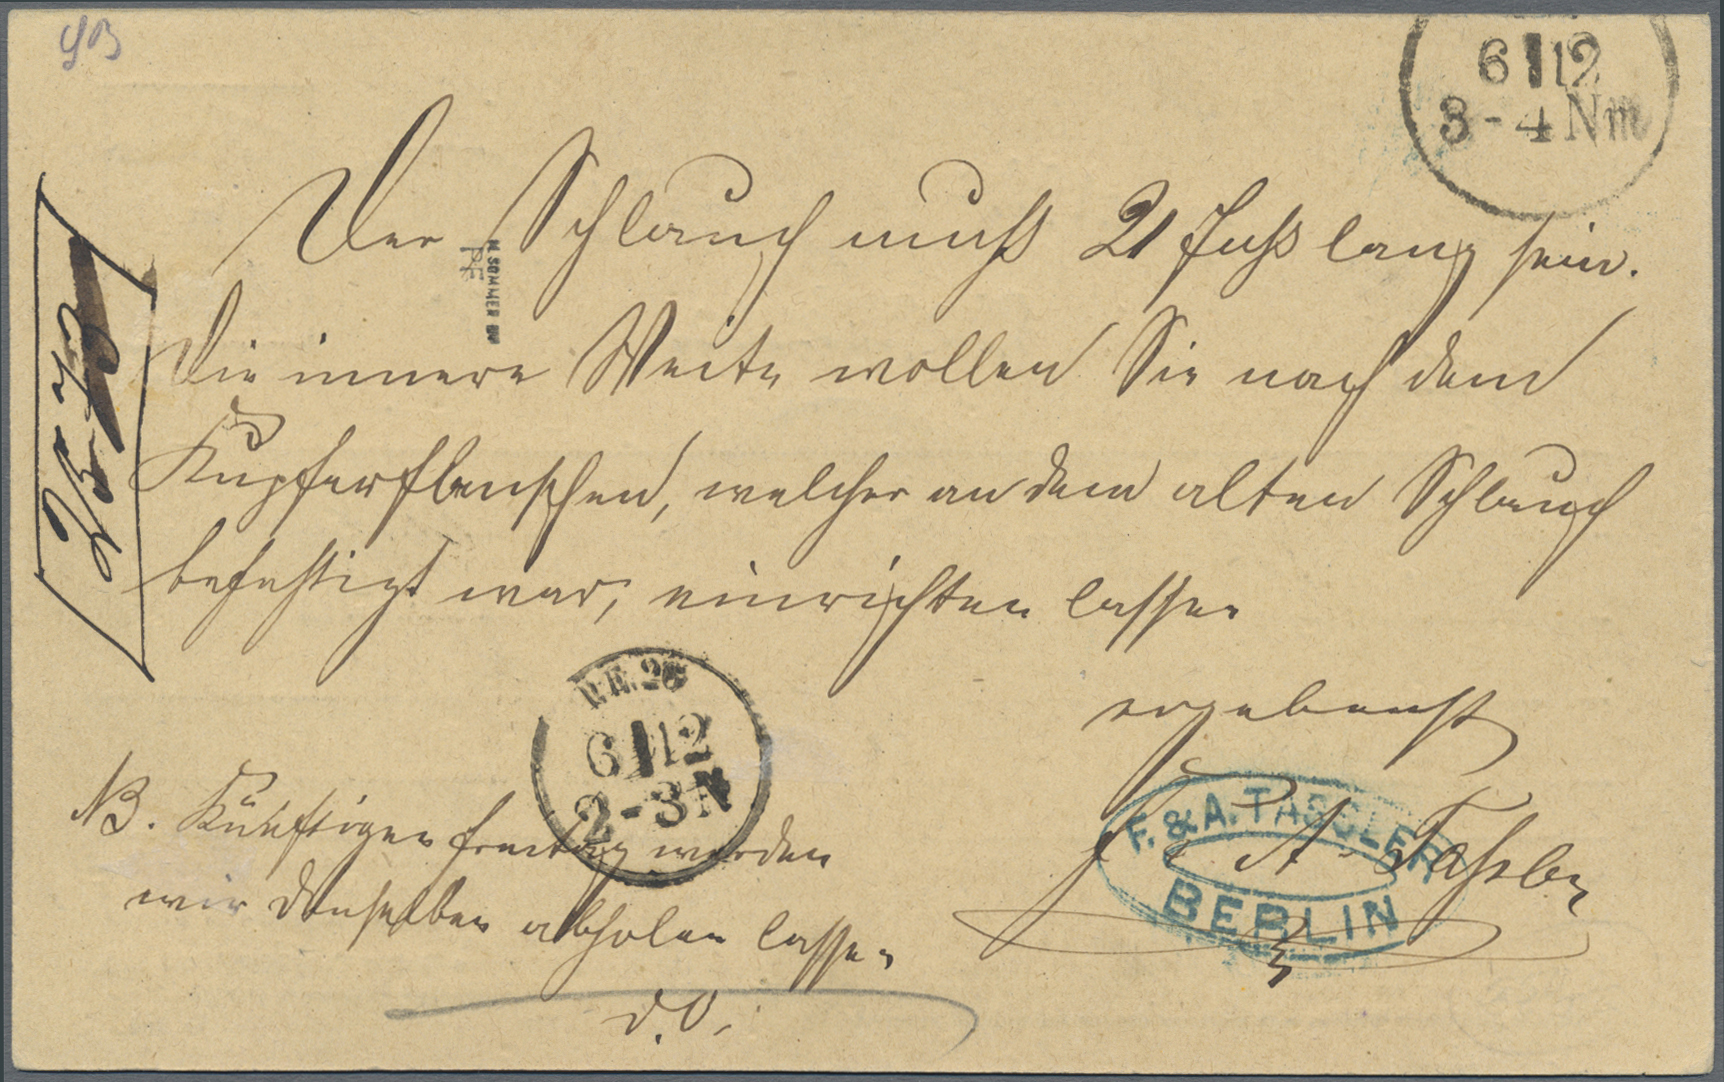 6 12
3-4 Nm
Der Schlauch muß 21 Fuß lang sein.
Die innere Weite wollen Sie nach dem
Kupferflanschen, welcher an dem alten Schlauch
befestigt war, einrichten lassen
ergebenst
F & A. Tassler
F. & A. TASSLER
BERLIN
P.E. 26
6 12
2-3 N
NB. Künftigen Freitag werden
wir denselben abholen lassen
d. O.
N. SOMMER BV